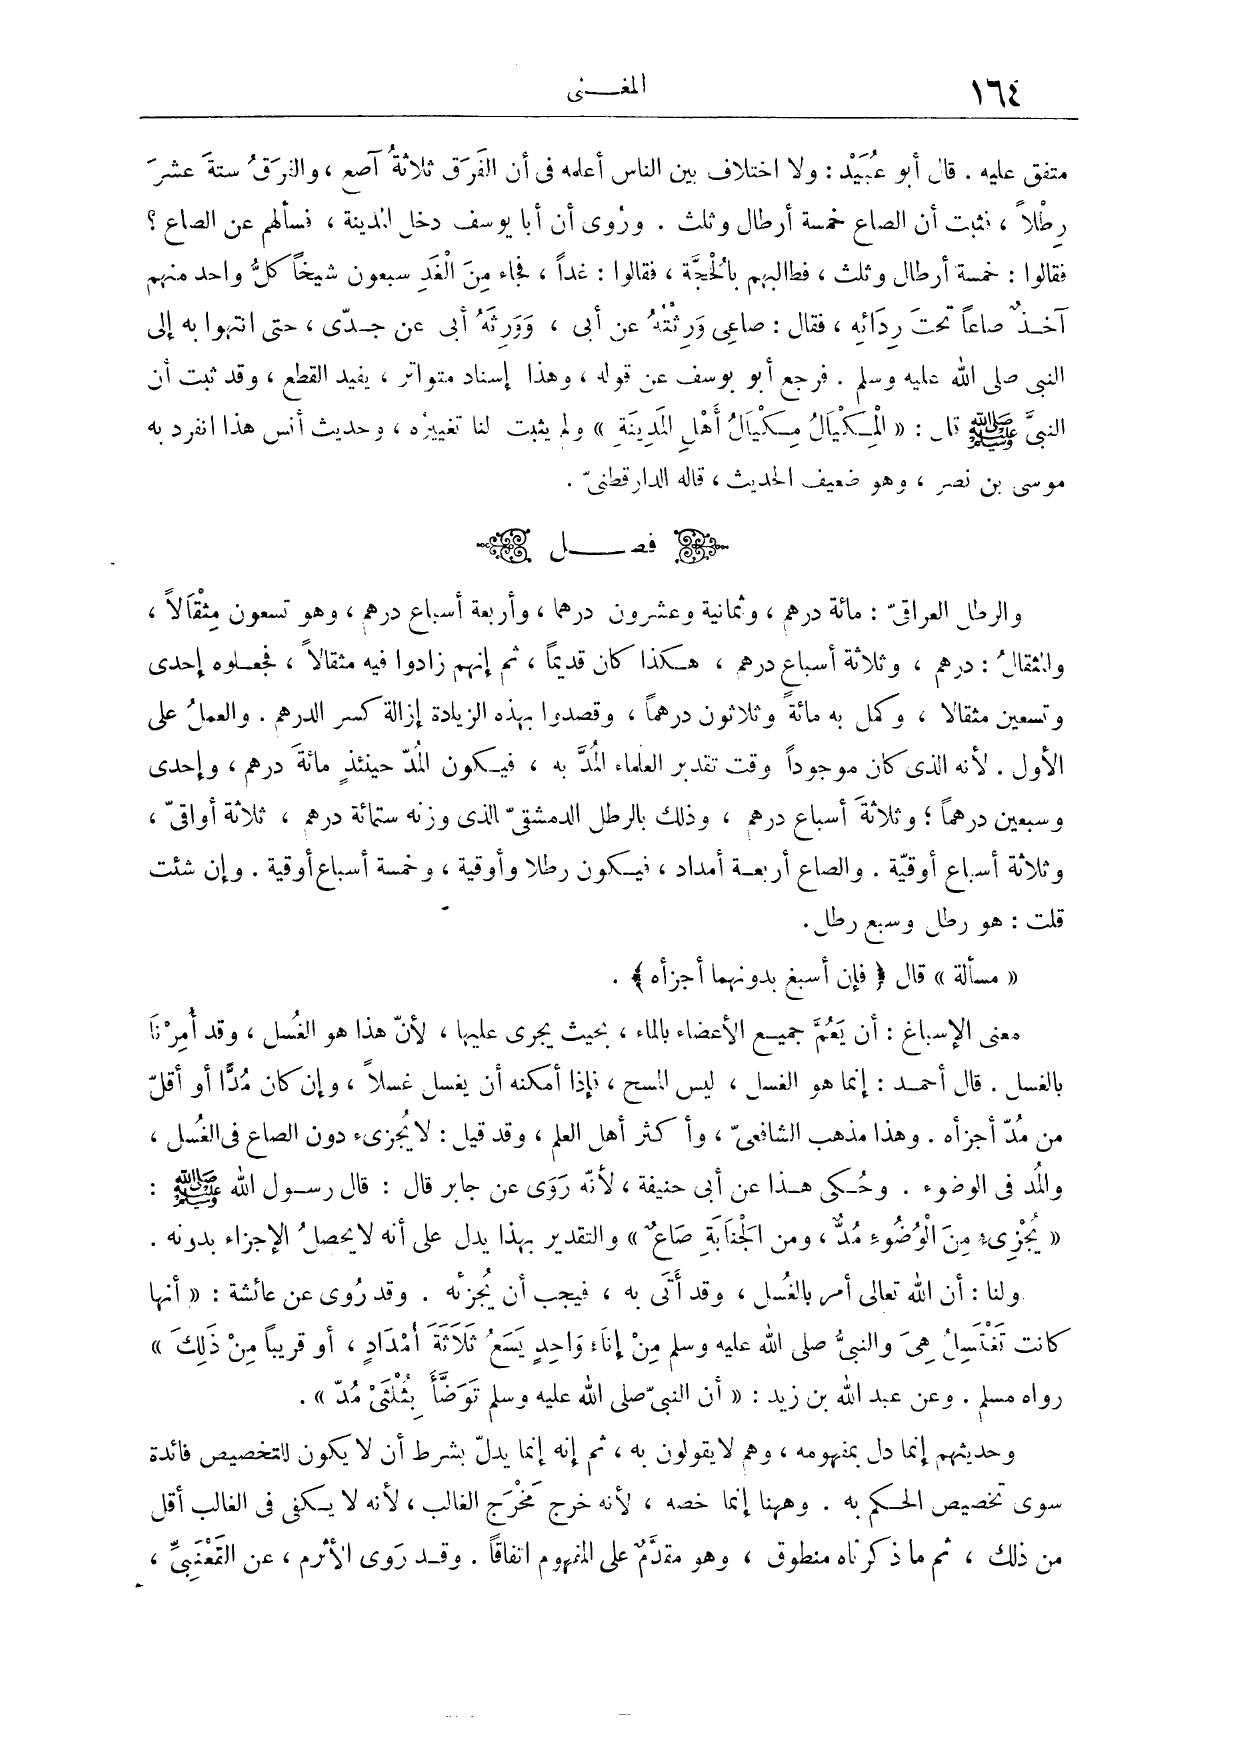 ١٦٤
المغـــنى
متفق عليه . قال أبو عُبَيْد : ولا اختلاف بين الناس أعلمه فى أن الفَرَق ثلاثةُ آصع ، والفرَقُ ستةَ عشرَ
رِطْلاً ، فثبت أن الصاع خمسة أرطال وثلث . ورُوى أن أبا يوسف دخل المدينة ، فسألهم عن الصاع ؟
فقالوا : خمسة أرطال وثلث ، فطالبهم بالْحُجَّة ، فقالوا : غداً ، فجاء مِنَ الْغَدِ سبعون شيخاً كلُّ واحد منهم
آخـذٌ صاعاً تحتَ رِدَائِهِ ، فقال : صاعِى وَرِثْتُهُ عن أبى ، وَوَرِثَهُ أبى عن جـدّى ، حتى انتهوا به إلى
النبى صلى الله عليه وسلم . فرجع أبو يوسف عن قوله ، وهذا إسناد متواتر ، يفيد القطع ، وقد ثبت أن
النبىَّ ﷺ قال : « الْمِـكْيَالُ مِـكْيَالُ أَهْلِ المَدِينَةِ » ولم يثبت لنا تغييرُه ، وحديث أنس هذا انفرد به
موسى بن نصر ، وهو ضعيف الحديث ، قاله الدارقطنىّ .
فصـــــل
والرطل العراقىّ : مائة درهم ، وثمانية وعشرون درهما ، وأربعة أسباع درهم ، وهو تسعون مِثْقَالاً ،
والمثقالُ : درهم ، وثلاثة أسباع درهم ، هـكذا كان قديماً ، ثم إنهم زادوا فيه مثقالاً ، فجعـلوه إحدى
وتسعين مثقالا ، وكمل به مائةً وثلاثون درهماً ، وقصدوا بهذه الزيادة إزالة كسر الدرهم . والعملُ على
الأول . لأنه الذى كان موجوداً وقت تقدير العلماء المُدَّ به ، فيـكون المُدّ حينئذٍ مائةَ درهم ، وإحدى
وسبعين درهماً ؛ وثلاثةَ أسباع درهم ، وذلك بالرطل الدمشقىّ الذى وزنه ستمائة درهم ، ثلاثة أواقىّ ،
وثلاثة أسباع أوقيّة . والصاع أربعـة أمداد ، فيـكون رطلا وأوقية ، وخمسة أسباع أوقية . وإن شئت
قلت : هو رطل وسبع رطل .
« مسألة » قال ﴿ فإن أسبغ بدونهما أجزأه ﴾ .
معنى الإسباغ : أن يَعُمَّ جميـع الأعضاء بالماء ، بحيث يجرى عليها ، لأنّ هذا هو الغُسل ، وقد أُمِرْنَا
بالغسل . قال أحمـد : إنما هو الغسل ، ليس المسح ، فإذا أمكنه أن يغسل غسلاً ، وإن كان مُدًّا أو أقلّ
من مُدّ أجزأه . وهذا مذهب الشافعىّ ، وأكثر أهل العلم ، وقد قيل : لا يُجزىء دون الصاع فى الغُسل ،
والمُد فى الوضوء . وحُـكى هـذا عن أبى حنيفة ، لأنّه رَوَى عن جابر قال : قال رسـول الله ﷺ :
« يُجْزِىءُ مِنَ الْوُضُوءِ مُدٌّ ، ومن الجْنَابَةِ صَاعٌ » والتقدير بهذا يدل على أنه لا يحصلُ الإجزاء بدونه .
ولنا : أن الله تعالى أمر بالغُسل ، وقد أَتَى به ، فيجب أن يُجزئه . وقد رُوى عن عائشة : « أنها
كانت تَغْتَسِلُ هِىَ والنبىُّ صلى الله عليه وسلم مِنْ إِنَاءٍ وَاحِدٍ يَسَعُ ثَلَاثَةَ أَمْدَادٍ ، أو قريباً مِنْ ذَلِكَ »
رواه مسلم . وعن عبد الله بن زيد : « أن النبىّ صلى الله عليه وسلم تَوَضَّأَ بِثُلْثَىْ مُدّ » .
وحديثهم إنما دل بمفهومه ، وهم لا يقولون به ، ثم إنه إنما يدلّ بشرط أن لا يكون للتخصيص فائدة
سوى تخصيص الحـكم به . وههنا إنما خصه ، لأنه خرج مَخْرَج الغالب ، لأنه لا يـكفى فى الغالب أقل
من ذلك ، ثم ما ذكرناه منطوق ، وهو مقدَّمٌ على المفهوم اتفاقاً . وقـد رَوى الأثرم ، عن القَعْنَبِىِّ ،